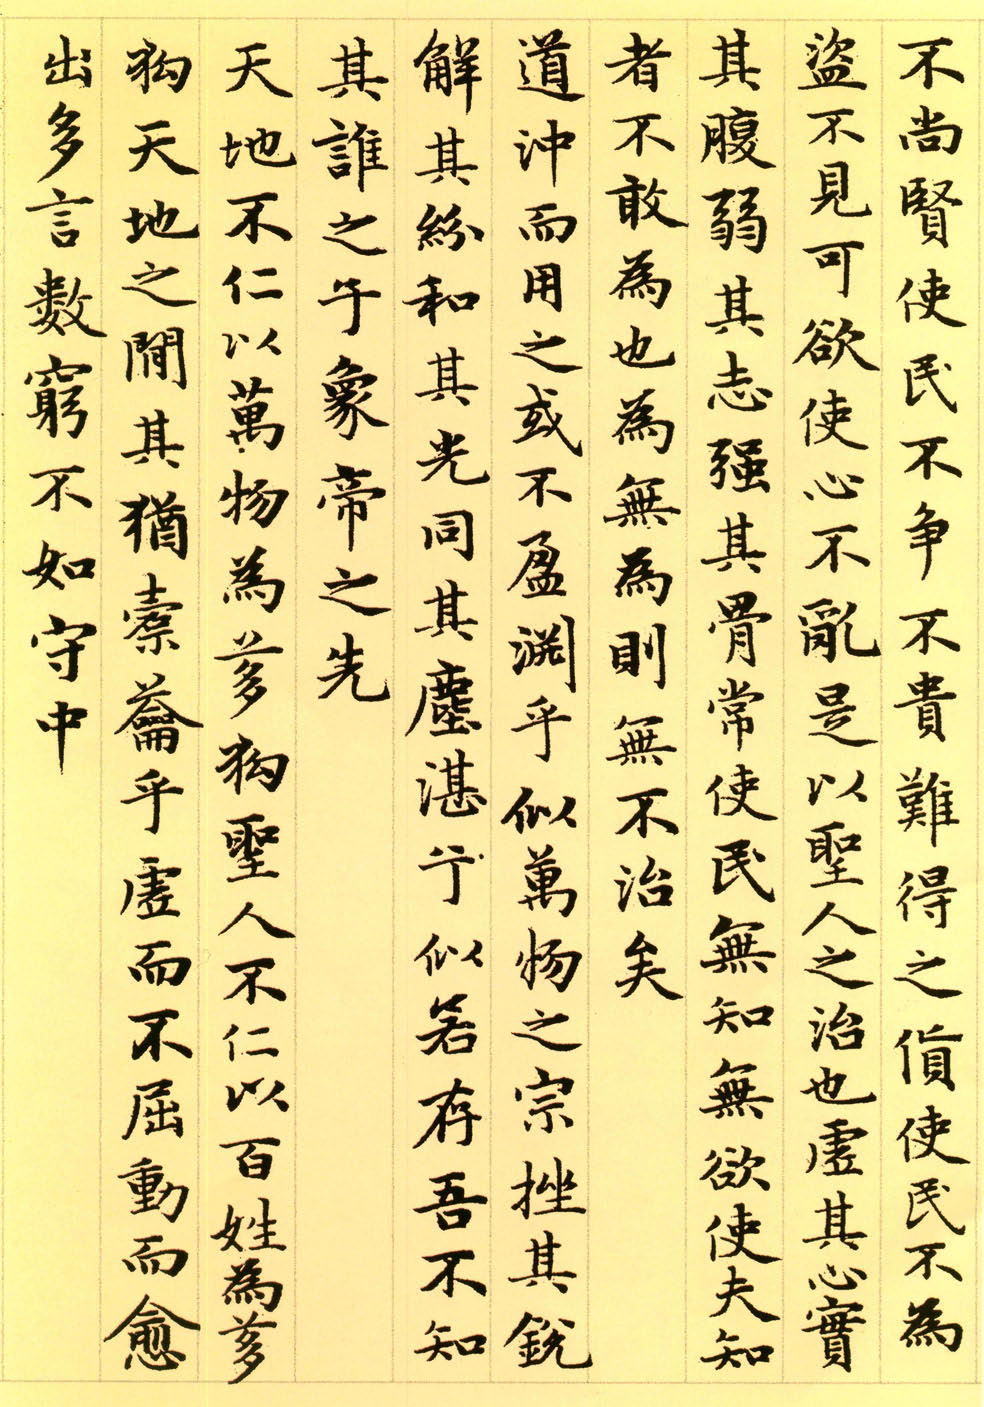 不尚賢使民不争不貴難得之貨使民不為
盜不見可欲使心不亂是以聖人之治也虛其心實
其腹弱其志强其骨常使民無知無欲使夫知
者不敢為也為無為則無不治矣
道沖而用之或不盈淵乎似萬物之宗挫其銳
解其紛和其光同其塵湛兮似若存吾不知
其誰之子象帝之先
天地不仁以萬物為芻狗聖人不仁以百姓為芻
狗天地之閒其猶橐籥乎虛而不屈動而愈
出多言數窮不如守中